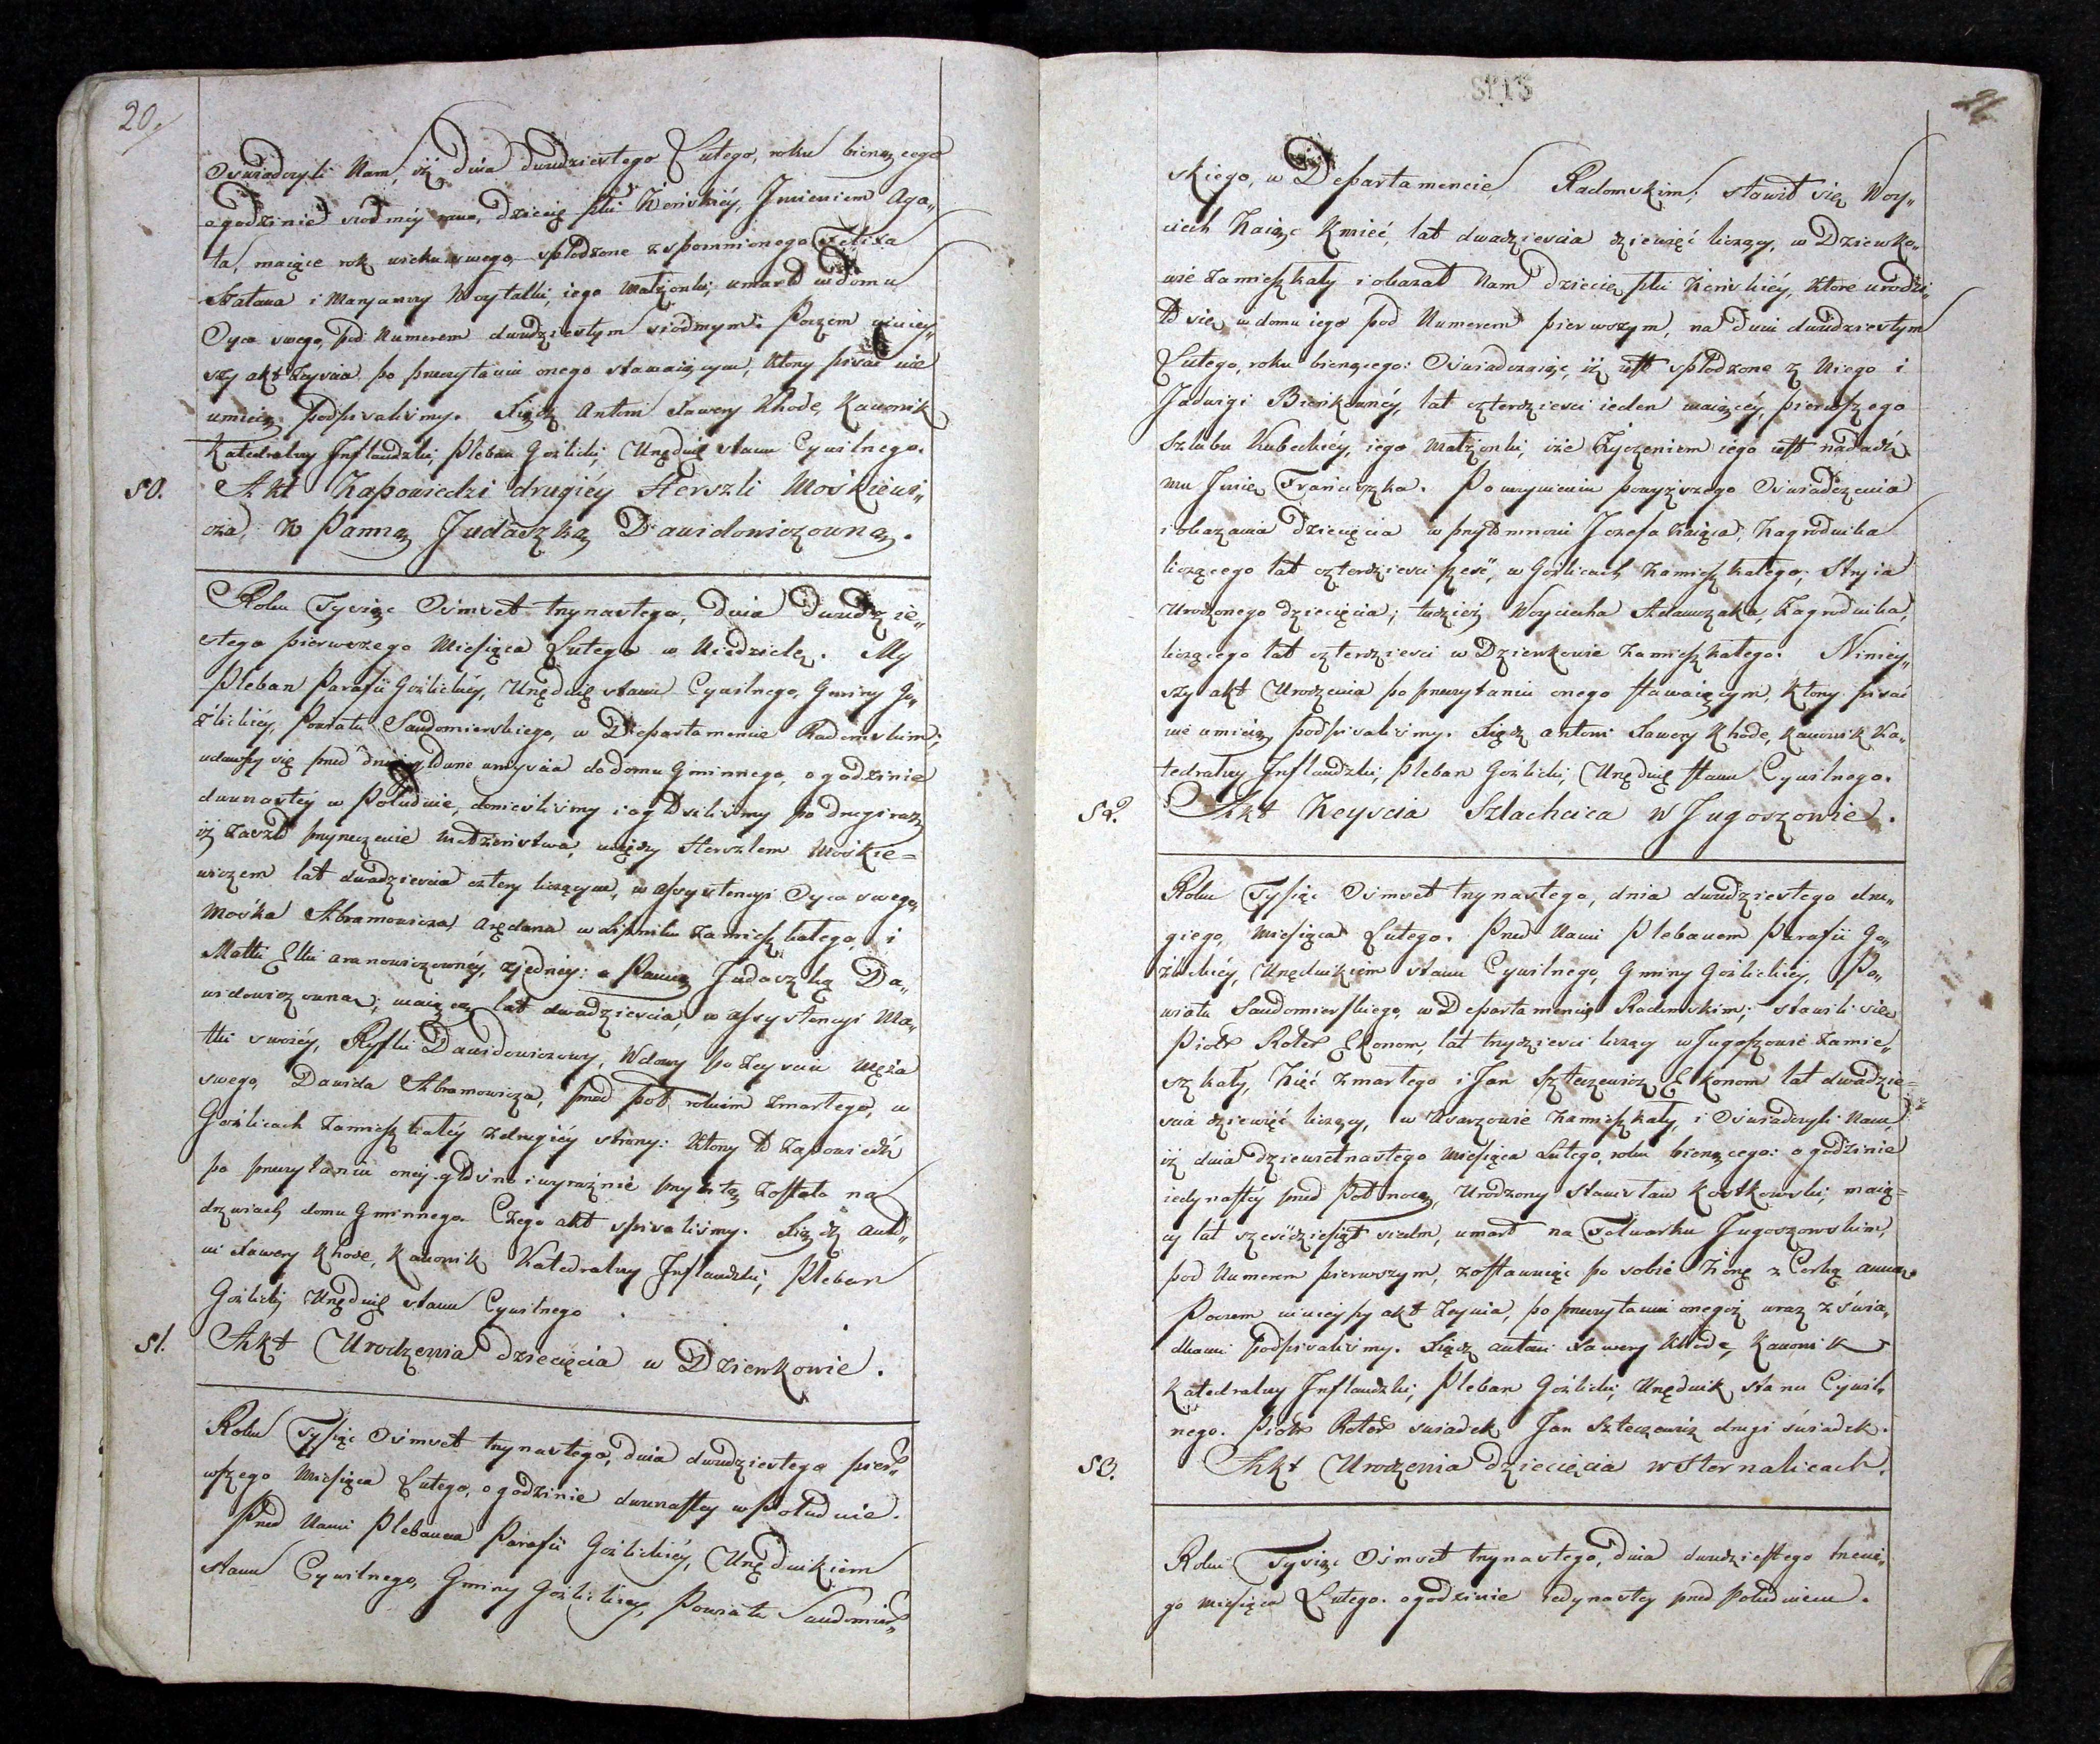 20.
Oswiadczyli Nam, iż dnia dwudziestego Lutego, roku bieżącego
o godzinie siodméy rano, dziecię płci Żeńskiéy, Jmieniem Aga„
ta, maiące rok wieku swego, spłodzone z spomnionego Felixa
Szatana i Maryanny Woytalki, iego Małżonki, umarło w domu
Oyca swego, pod Numerem dwudziestym siódmym. Poczem niniey„
szy akt Zeyscia po przeczytaniu onego stawaiącym, ktorzy pisać nie
umieią podpisalismy. Xiądz Antoni Xawery Khode, Kanonik
Katedralny Inflandzki, Pleban Goźlicki, Urzędnik stanu Cywilnego.
50. Akt Zapowiedzi drugiéy Herszli Moskiewi„
cza, z Panną Judaszką Dawidowiczowną.
Roku Tysiąc Osmset trzynastego, dnia dwudzie„
stego pierwszego Miesiąca Lutego w Niedzielę. My
Pleban Parafii Goźlickiéy, Urzędnik stanu Cywilnego, Gminy Go„
źlickiéy, Powiatu Sandomierskiego, w Departamencie Radomskim;
udawszy się przed drzwi głowne weyscia do domu Gminnego, o godzinie
dwunastéy w Południe, donieslismy i ogłosilismy po drugi raz
iż zaszło przyrzeczenie Małżeństwa, między Herszlem Moskie=
wiczem lat dwadziescia cztery liczącym, w assystencyi Oyca swego,
Moska Abramowicza Arędarza w Lipniku zamieszkałego, i
Matki Elki Aronowiczownéy, z jednéy: a Panną Judaszką Da„
widowiczowną, maiącą lat dwadziescia, w assystencyi Ma„
tki swoiéy, Ryfki Dawidowiczowy, Wdowy po zeysciu Męża
swego, Dawida Abramowicza, przed poł rokiem zmarłego, w
Goźlicach zamieszkałéy z drugiéy strony: Ktory to Zapowiedź
po przeczytaniu onéy głosno i wyraźnie przybitą została na
drzwiach domu Gminnego. Czego akt spisalismy. Xiądz Anto„
ni Xawery Khode, Kanonik Katedralny Inflandzki, Pleban
Goźlicki Urzędnik stanu Cywilnego
51. Akt Urodzenia dziecięcia w Dzierkowie.
Roku Tysiąc Osmset trzynastego, dnia dwudziestego pier„
wszego Miesiąca Lutego, o godzinie dwunastey w Południe.
Przed Nami Plebanem Parafii Goźlickiéy, Urzędnikiem
stanu Cywilnego, Gminy Goźlickiey, Powiatu Sandomier„
21.
skiego, w Departamencie Radomskim; stawił się Woy„
ciech Zaiąc Kmieć, lat dwadziescia dziewięć liczący, w Dzierko„
wie zamieszkały i okazał Nam dziecię płci Żeńskiéy, ktore urodzi„
ło się w domu iego pod Numerem pierwszym, na dniu dwudziestym
Lutego, roku bieżącego: Oswiadczaiąc, iż iest spłodzone z Niego i
Jadwigi Bieńkownéy, lat czterdziesci ieden maiącéy, pierwszego
Szlubu Kubeckiéy, iego Małżonki, i że Życzeniem iego iest nadadź
mu Jmię Franciszka. Po uczynieniu powyższego Oswiadczenia
i okazania dziecięcia w przytomnosci Jozefa Zaiąca, Zagrodnika
liczącego lat czterdziesci szesć, w Goźlicach zamieszkałego, Stryia
Urodzonego dziecięcia; tudzież Woyciecha Adamczaka, Zagrodnika,
liczącego lat czterdziesci w Dzierkowie zamieszkałego. Niniey„
szy akt Urodzenia po przeczytaniu onego stawaiącym, ktorzy pisać
nie umieią podpisalismy. Xiądz Antoni Xawery Khode, Kanonik Ka„
tedralny Inflandzki, Pleban Goźlicki, Urzędnik stanu Cywilnego.
52. Akt Zeyscia Szlachcica w Jugoszowie.
Roku Tysiąc Osmset trzynastego, dnia dwudziestego dru„
giego, Miesiąca Lutego. Przed Nami Plebanem Parafii Go„
źlickiéy, Urzędnikiem stanu Cywilnego, Gminy Goźlickiéy, Po„
wiatu Sandomierskiego, w Departamencie Radomskim; stawili się
Piotr Roter Ekonom, lat trzydziesci liczący w Jugoszowie zamie„
szkały, Zięć zmarłego i Jan Szteczewicz Ekonom lat dwadzie=
scia dziewięć liczący, w Usarzowie zamieszkały, i Oswiadczyli Nam,
iż dnia dziewietnastego Miesiąca Lutego, roku bieżącego: o godzinie
iedynastéy przed Połnocą, Urodzony Stanisław Kostkowski, maią=
cy lat szesćdziesiąt siedm, umarł na Folwarku Jugoszowskim,
pod Numerem pierwszym, zostawuiąc po sobie Żonę z Corką Anną.
Poczem ninieyszy akt Zeyscia, po przeczytaniu onegoż wraz z świa„
dkami podpisalismy. Xiądz Antoni Xawery Khode, Kanonik
Katedralny Inflandzki, Pleban Goźlicki, Urzędnik stanu Cywil„
nego. Piotr Roter swiadek Jan Szteczewicz drugi świadek.
53. Akt Urodzenia dziecięcia w Sternalicach.
Roku Tysiąc Osmset trzynastego, dnia dwudziestego trzecie„
go miesiąca Lutego. o godzinie iedynastey przed Południem.